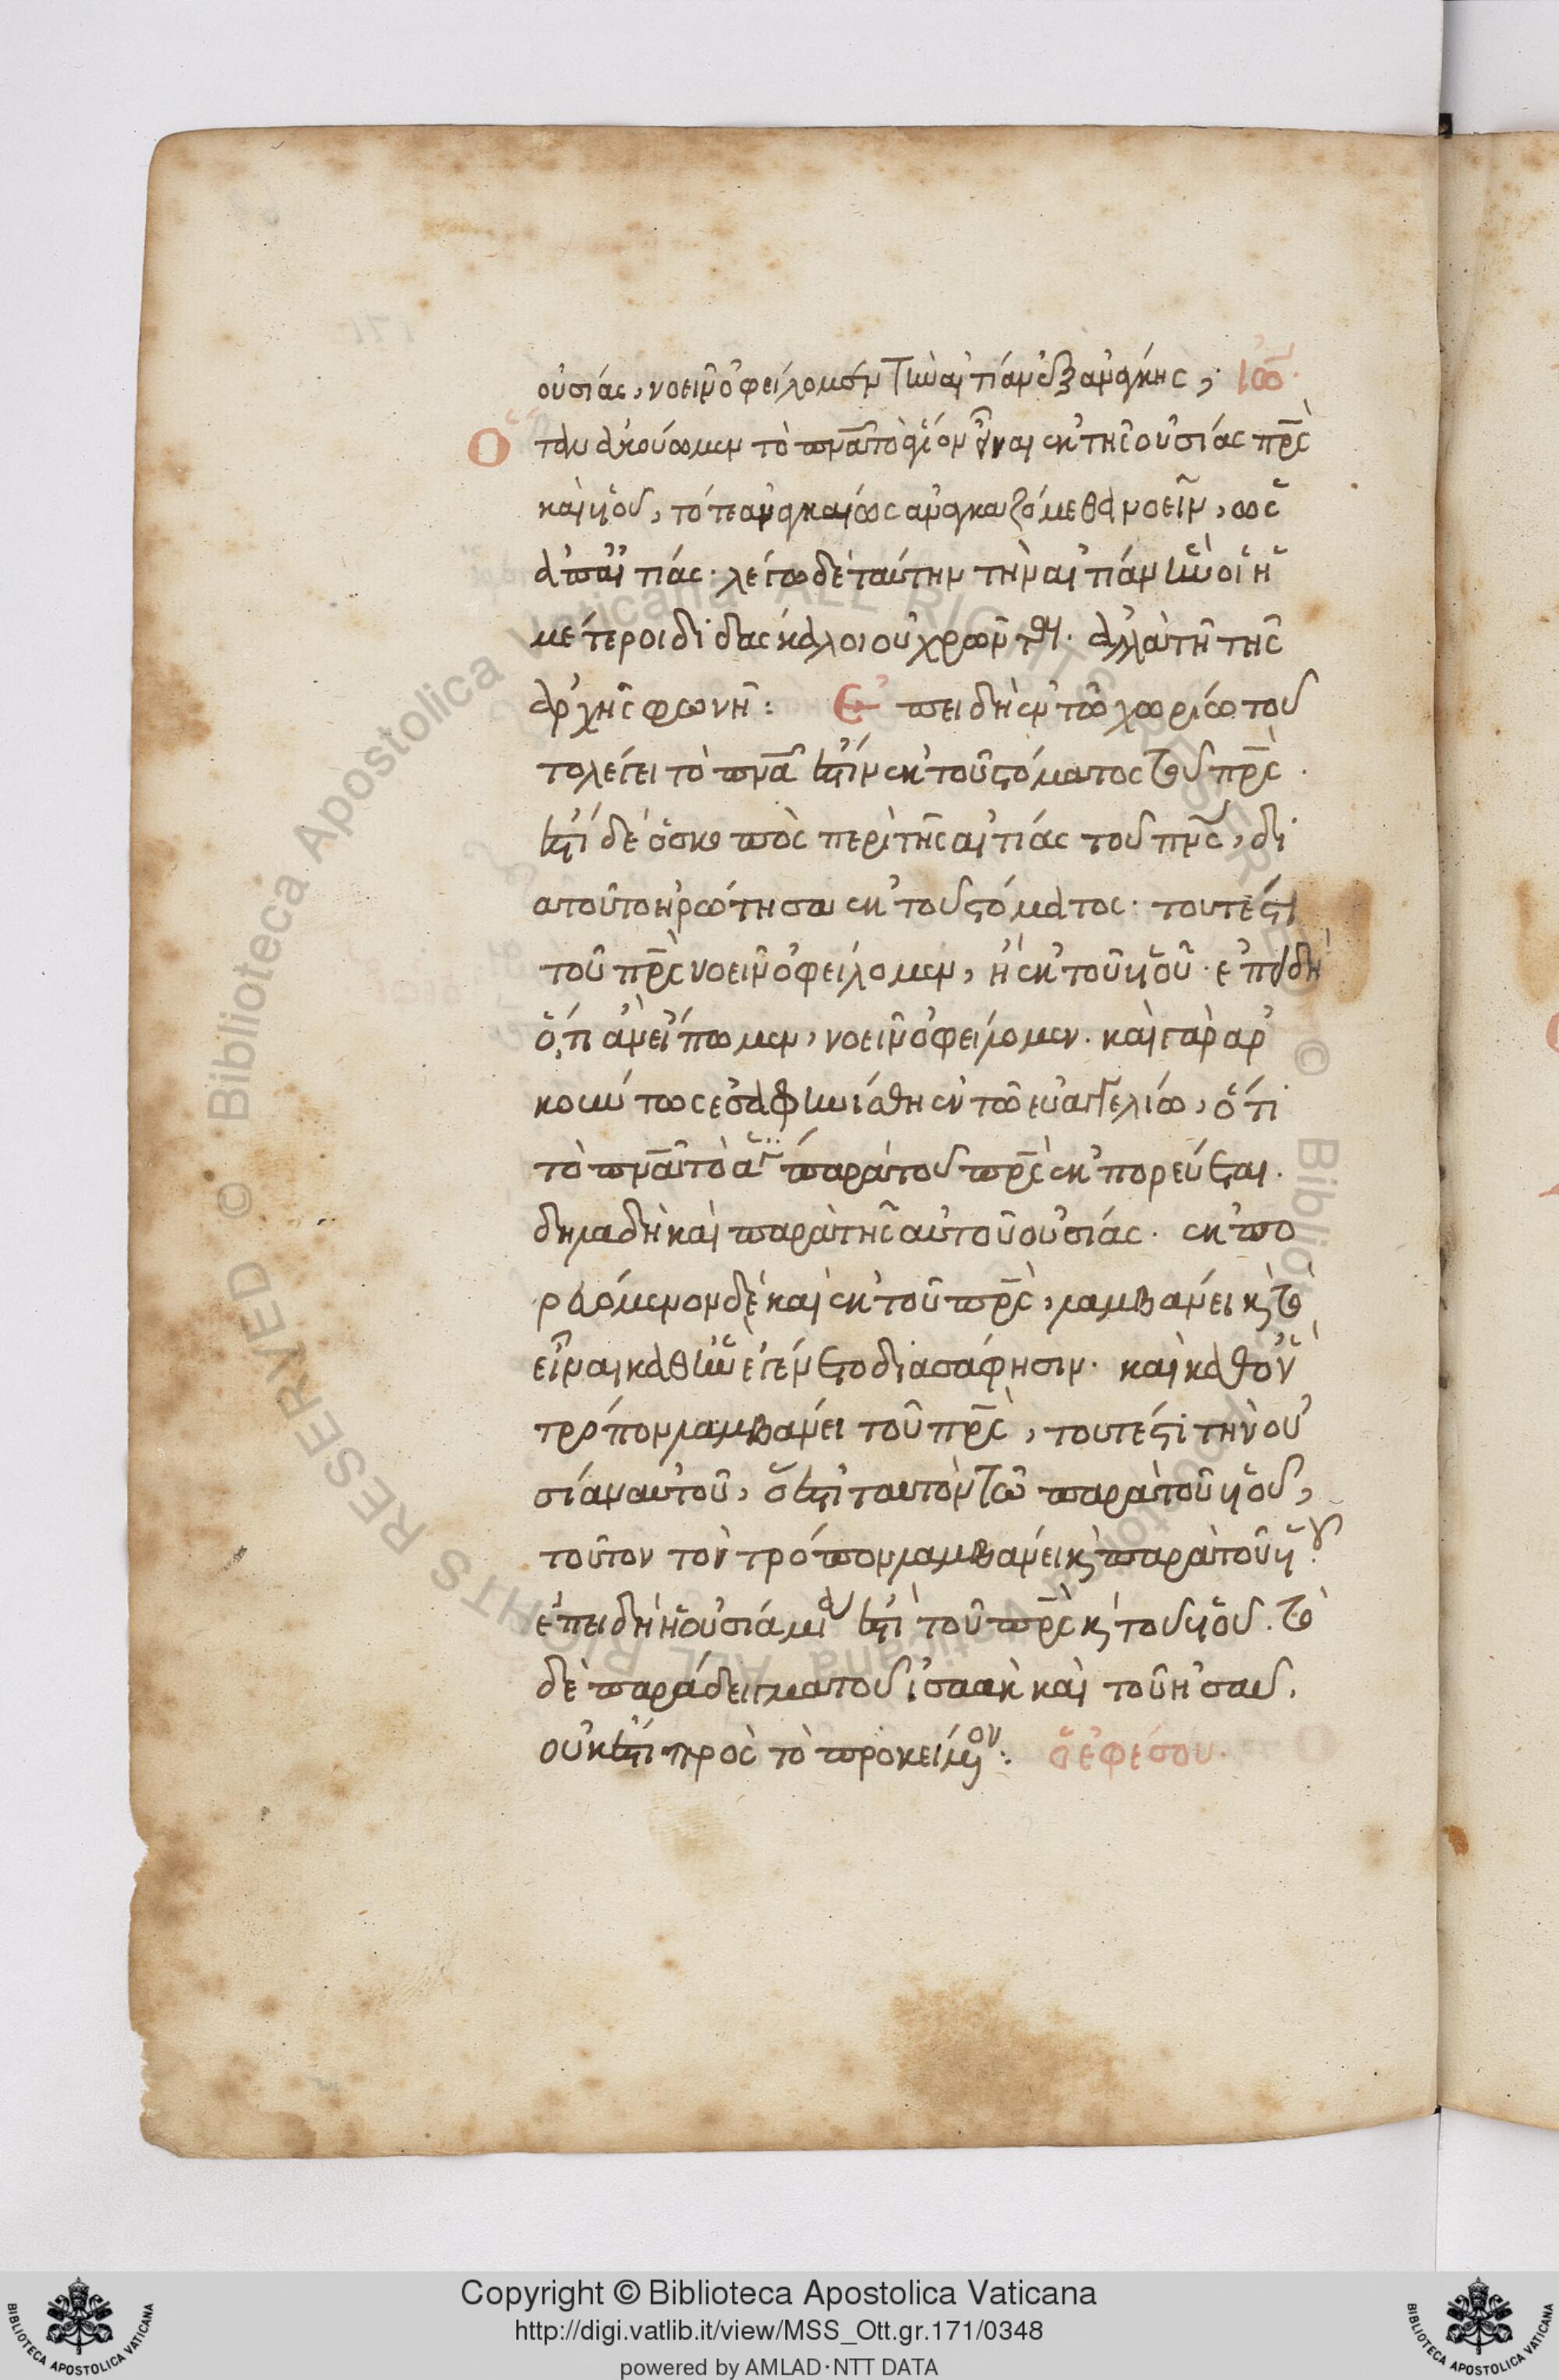 οὐσίας, νοεῖν ὀφείλομεν τὴν αἰτίαν ἐξ ἀνάγκης, ἰω.
Ὅταν ἀκούωμεν τὸ πνᾶ τὸ ἅγιον εἶναι ἐκ τῆς οὐσίας πρς
καὶ υἱοῦ, τότε ἀναγκαίως ἀναγκαζόμεθα νοεῖν, ὡς
ἀπ' αἰτίας. λέγω δὲ ταύτην τὴν αἰτίαν ἣν οἱ ἡ
μέτεροι διδάσκαλοι οὐ χρῶνται. ἀλλὰ τῇ τῆς
ἀρχῆς φωνῇ: Ἐπειδὴ ἐν τῶ χωρίω του
το λέγει τὸ πνᾶ ἐστὶν ἐκ τοῦ στόματος τοῦ πρς.
ἐστὶ δὲ ὁ σκοπὸς περὶ τῆς αἰτίας τοῦ πνς, δι
ατοῦτο ἠρώτησα ἐκ τοῦ στόματος. τουτέστι
τοῦ πρς νοεῖν ὀφείλομεν, ἢ ἐκ τοῦ υἱοῦ. ἐπειδὴ
ὅ,τι ἂν εἴπωμεν, νοεῖν ὀφείλομεν. καὶ γὰρ ἀρ
κούντως ἐσαφηνίσθη ἐν τῶ εὐαγγελίω, ὅτι
τὸ πνᾶ τὸ ἅγ παρὰ τοῦ πρς ἐκπορεύεται.
δηλαδὴ καὶ παρὰ τῆς αὐτοῦ οὐσίας. ἐκπο
ρευόμενον δὲ καὶ ἐκ τοῦ πρς, λαμβάνει κ τὸ
εἶναι καθ' ἣν ἐγένετο διασάφησιν. καὶ καθ' ὃν
τρόπον λαμβάνει τοῦ πρς, τουτέστι τὴν οὐ
σίαν αὐτοῦ, ὅ ἐστι ταυτὸν τῶ παρὰ τοῦ υἱοῦ,
τοῦτον τὸν τρόπον λαμβάνει κ παρὰ τοῦ υἱοῦ.
ἐπειδὴ ἡ οὐσία μία ἐστὶ τοῦ πρς κ τοῦ υἱοῦ. τὸ
δὲ παράδειγμα τοῦ ἰσαὰκ καὶ τοῦ ἠσαῦ,
οὐκ ἐστὶ πρὸς τὸ προκείμενον: ὁ ἐφέσου.
Copyright © Biblioteca Apostolica Vaticana
http://digi.vatlib.it/view/MSS_Ott.gr.171/0348
powered by AMLAD·NTT DATA